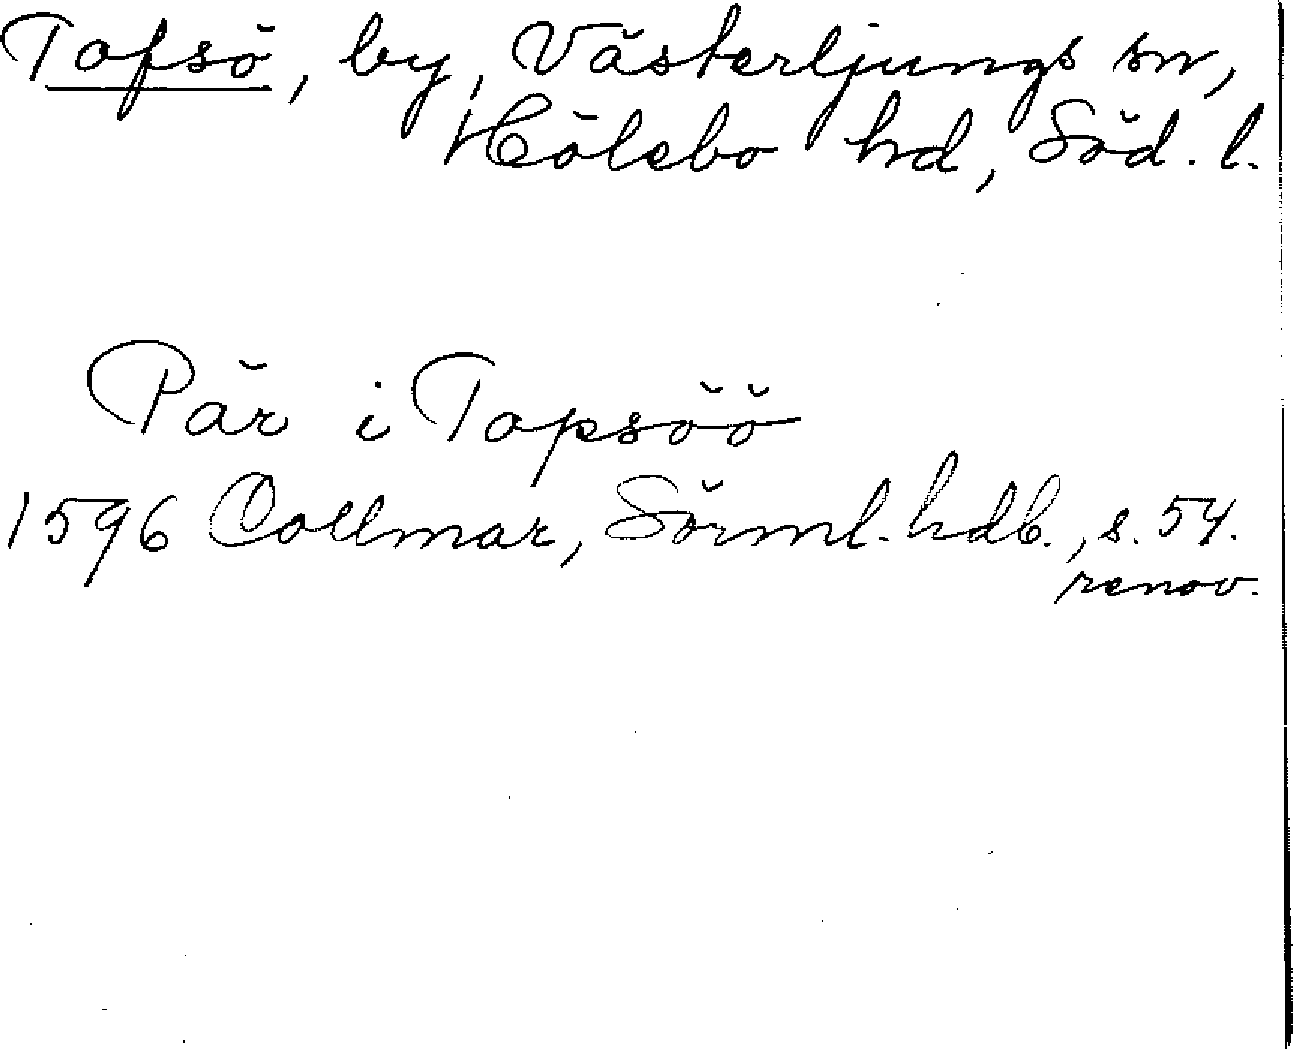 Tofsö, by, Västerljungs sn,
Hölebo hd, Söd. l.
Pär i Topsöö
1596 Collmar, Sörml. hdb., s. 54.
renov.